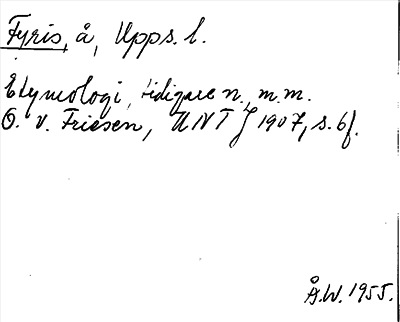 Fyris, å, Upps. l.
Etymologi, tidigare n., m.m.
O. v. Friesen, UNT J 1907, s. 6f.
Å.W. 1955.